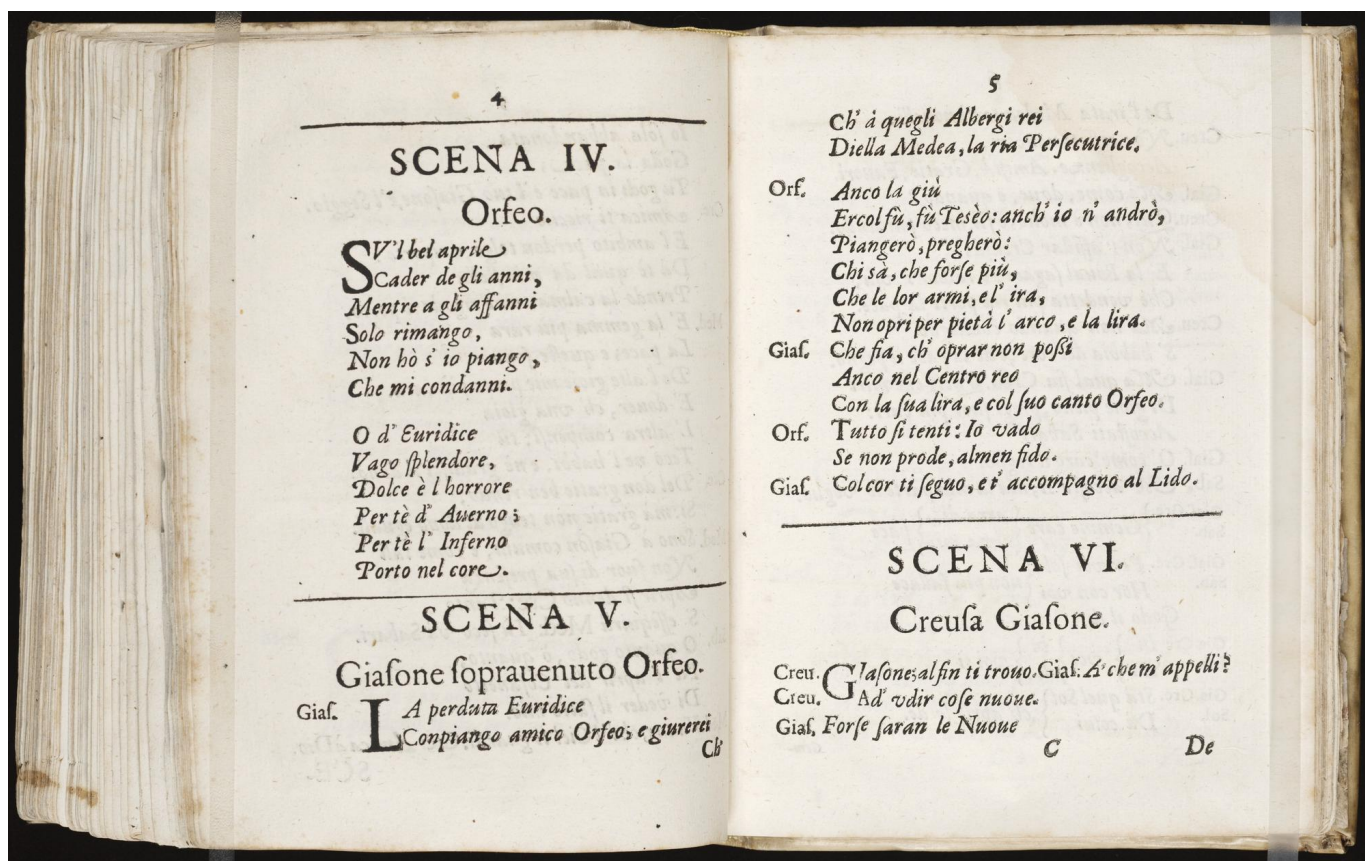 4
SCENA IV.
Orfeo.
SV'l bel aprile
SCader de gli anni,
Mentre a gli affanni
Solo rimango,
Non hò s' io piango,
Che mi condanni.
O d' Euridice
Vago ſplendore,
Dolce è l horrore
Per tè d' Auerno;
Per tè l' Inferno
Porto nel core.
SCENA V.
Giaſone ſoprauenuto Orfeo.
Giaſ. LA perduta Euridice
LConpiango amico Orfeo; e giurerei
Ch'
5
Ch' à quegli Albergi rei
Diella Medea, la ria Perſecutrice.
Orf. Anco la giù
Ercol fù, fù Tesèo: anch' io n' andrò,
Piangerò, pregherò:
Chi sà, che forſe più,
Che le lor armi, e l' ira,
Non opri per pietà l' arco, e la lira.
Giaſ. Che fia, ch' oprar non poſſi
Anco nel Centro reo
Con la ſua lira, e col ſuo canto Orfeo.
Orf. Tutto ſi tenti: Io vado
Se non prode, almen fido.
Giaſ. Colcor ti ſeguo, e t' accompagno al Lido.
SCENA VI.
Creuſa Giaſone.
Creu. GIaſone; alfin ti trouo. Giaſ. A' che m' appelli?
Creu. Ad' vdir coſe nuoue.
Giaſ. Forſe ſaran le Nuoue
C De